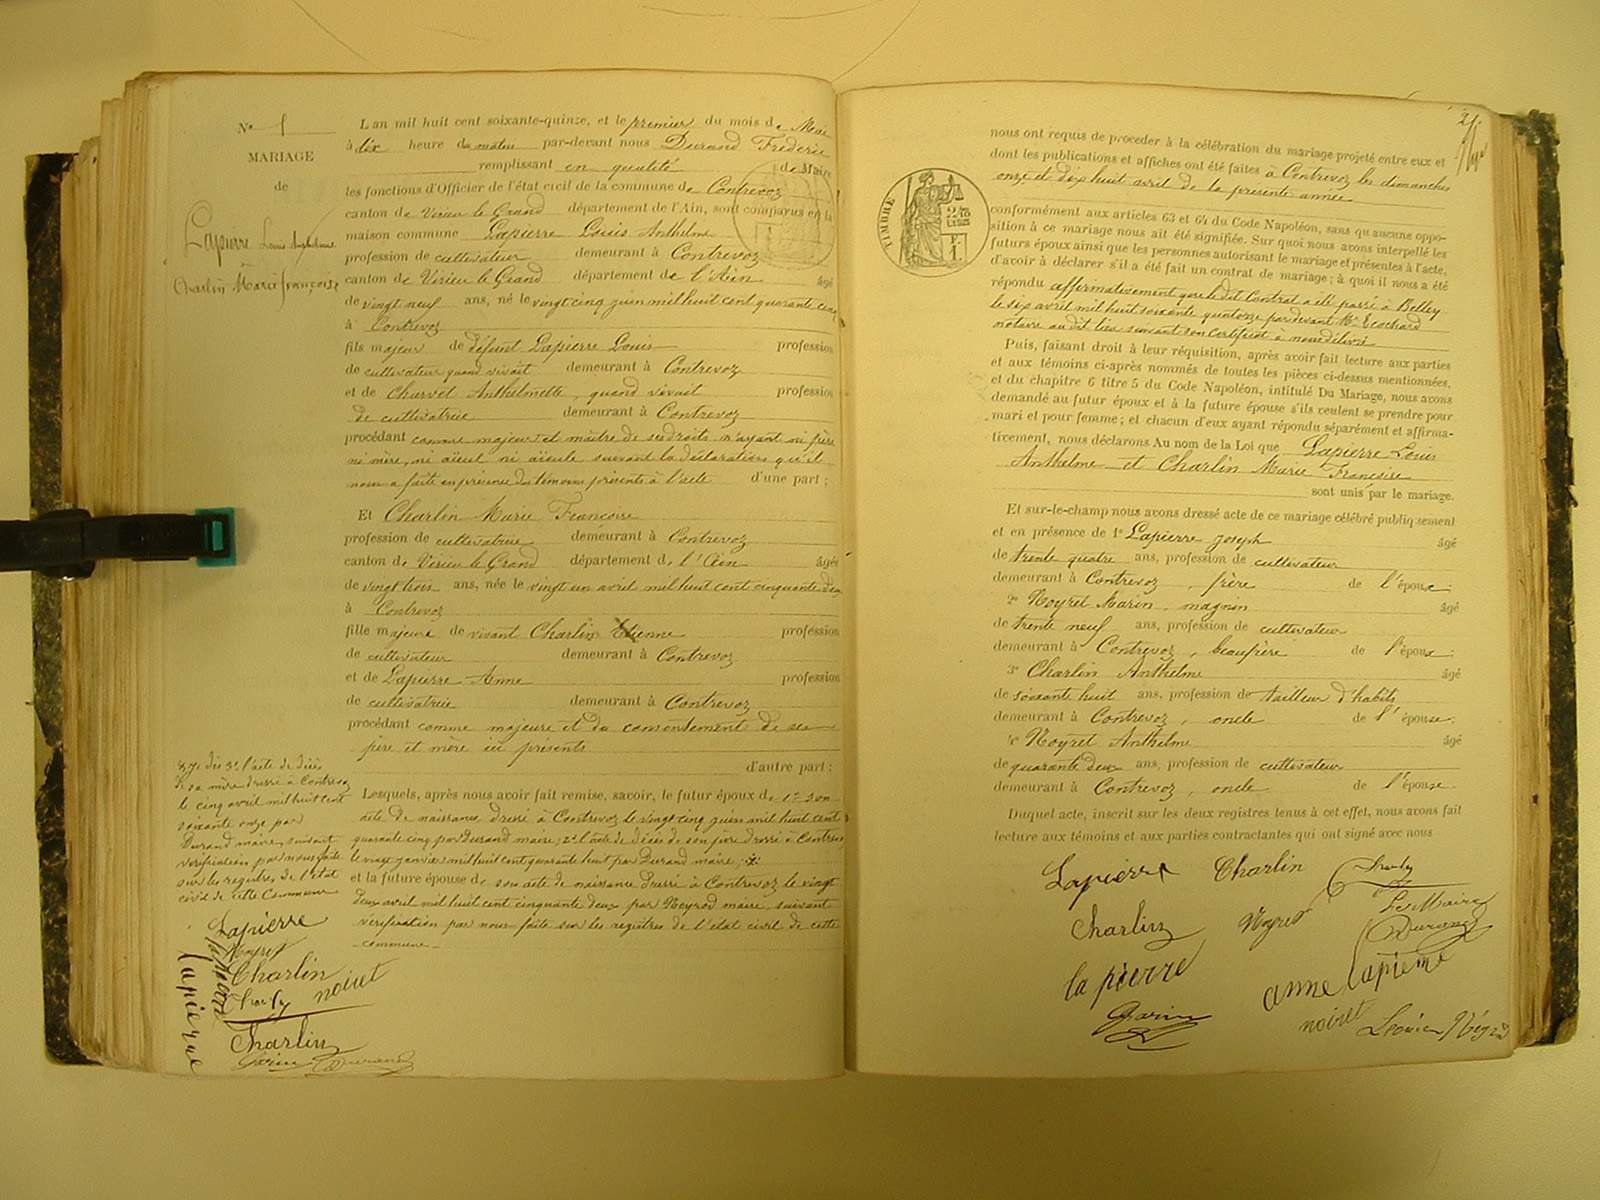 N° 1
MARIAGE
de
Lapierre Louis Anthelme
Charlin Marie françoise
L'an mil huit cent soixante-quinze, et le premier du mois de Mai
à dix heure du matin par-devant nous Durand Frédéric
remplissant en qualité de Maire
les fonctions d'Officier de l'état civil de la commune de Contrevoz
canton de Virieu le Grand département de l'Ain, sont comparus en la
maison commune Lapierre Louis Anthelme
profession de cultivateur demeurant à Contrevoz
canton de Virieu le Grand département de l'Ain âgé
de vingt neuf ans, né le vingt cinq juin mil huit cent quarante cinq
à Contrevoz
fils majeur de défunt Lapierre Louis profession
de cultivateur quand vivait demeurant à Contrevoz
et de Charvet Anthelmette, quand vivait profession
de cultivatrice demeurant à Contrevoz
procédant comme majeur et maître de ses droits n'ayant ni père
ni mère, ni aïeul ni aïeule suivant la déclaration qu'il
nous a faite en présence des témoins présents à l'acte d'une part ;
Et Charlin Marie Françoise
profession de cultivatrice demeurant à Contrevoz
canton de Virieu le Grand département de l'Ain âgée
de vingt trois ans, née le vingt un avril mil huit cent cinquante deux
à Contrevoz
fille majeure de vivant Charlin Etienne profession
de cultivateur demeurant à Contrevoz
et de Lapierre Anne profession
de cultivatrice demeurant à Contrevoz
procédant comme majeure et du consentement de ses
père et mère ici présents
d'autre part :
Lesquels, après nous avoir fait remise, savoir, le futur époux de 1° son
acte de naissance dressé à Contrevoz le vingt cinq juin mil huit cent
quarante cinq par Durand maire ; 2° l'acte de décès de son père dressé à Contrevoz
le vingt janvier mil huit cent quarante huit par Durand maire ;
et la future épouse de son acte de naissance dressé à Contrevoz le vingt
deux avril mil huit cent cinquante deux par Neyrod maire, suivant
vérification par nous faite sur les registres de l'état civil de cette
commune
3° l'acte de décès
de sa mère dressé à Contrevoz
le cinq avril mil huit cent
soixante onze par
Durand maire, suivant
vérification par nous faite
sur les registres de l'état
civil de cette Commune
Lapierre
Noyret
Charlin
noiret
Lapierre
Charlin
Garin Durand
21
nous ont requis de proceder à la célébration du mariage projeté entre eux et
dont les publications et affiches ont été faites à Contrevoz les dimanches
onze et dix huit avril de la présente année
TIMBRE
conformément aux articles 63 et 64 du Code Napoléon, sans qu'aucune oppo-
sition à ce mariage nous ait été signifiée. Sur quoi nous avons interpellé les
futurs époux ainsi que les personnes autorisant le mariage et présentes à l'acte,
d'avoir à déclarer s'il a été fait un contrat de mariage ; à quoi il nous a été
répondu affirmativement que le dit Contrat a été passé à Belley
le six avril mil huit soixante quatorze par devant Me Ecochard
notaire au dit lieu suivant son certificat à nous délivré
Puis, faisant droit à leur réquisition, après avoir fait lecture aux parties
et aux témoins ci-après nommés de toutes les pièces ci-dessus mentionnées,
et du chapitre 6 titre 5 du Code Napoléon, intitulé Du Mariage, nous avons
demandé au futur époux et à la future épouse s'ils veulent se prendre pour
mari et pour femme ; et chacun d'eux ayant répondu séparément et affirma-
tivement, nous déclarons Au nom de la Loi que Lapierre Louis
Anthelme et Charlin Marie Françoise
sont unis par le mariage.
Et sur-le-champ nous avons dressé acte de ce mariage célébré publiquement
et en présence de 1° Lapierre Joseph âgé
de trente quatre ans, profession de cultivateur
demeurant à Contrevoz, frère de l'époux ;
2° Noyret Marin, maçon âgé
de trente neuf ans, profession de cultivateur
demeurant à Contrevoz, beaufrère de l'époux ;
3° Charlin Anthelme âgé
de soixante huit ans, profession de tailleur d'habits
demeurant à Contrevoz, oncle de l'épouse ;
4° Noyret Anthelme âgé
de quarante deux ans, profession de cultivateur
demeurant à Contrevoz, oncle de l'épouse
Duquel acte, inscrit sur les deux registres tenus à cet effet, nous avons fait
lecture aux témoins et aux parties contractantes qui ont signé avec nous
Lapierre Charlin
Charlin Noyret Le Maire
Durand
la pierre anne lapierre
Garin noiret